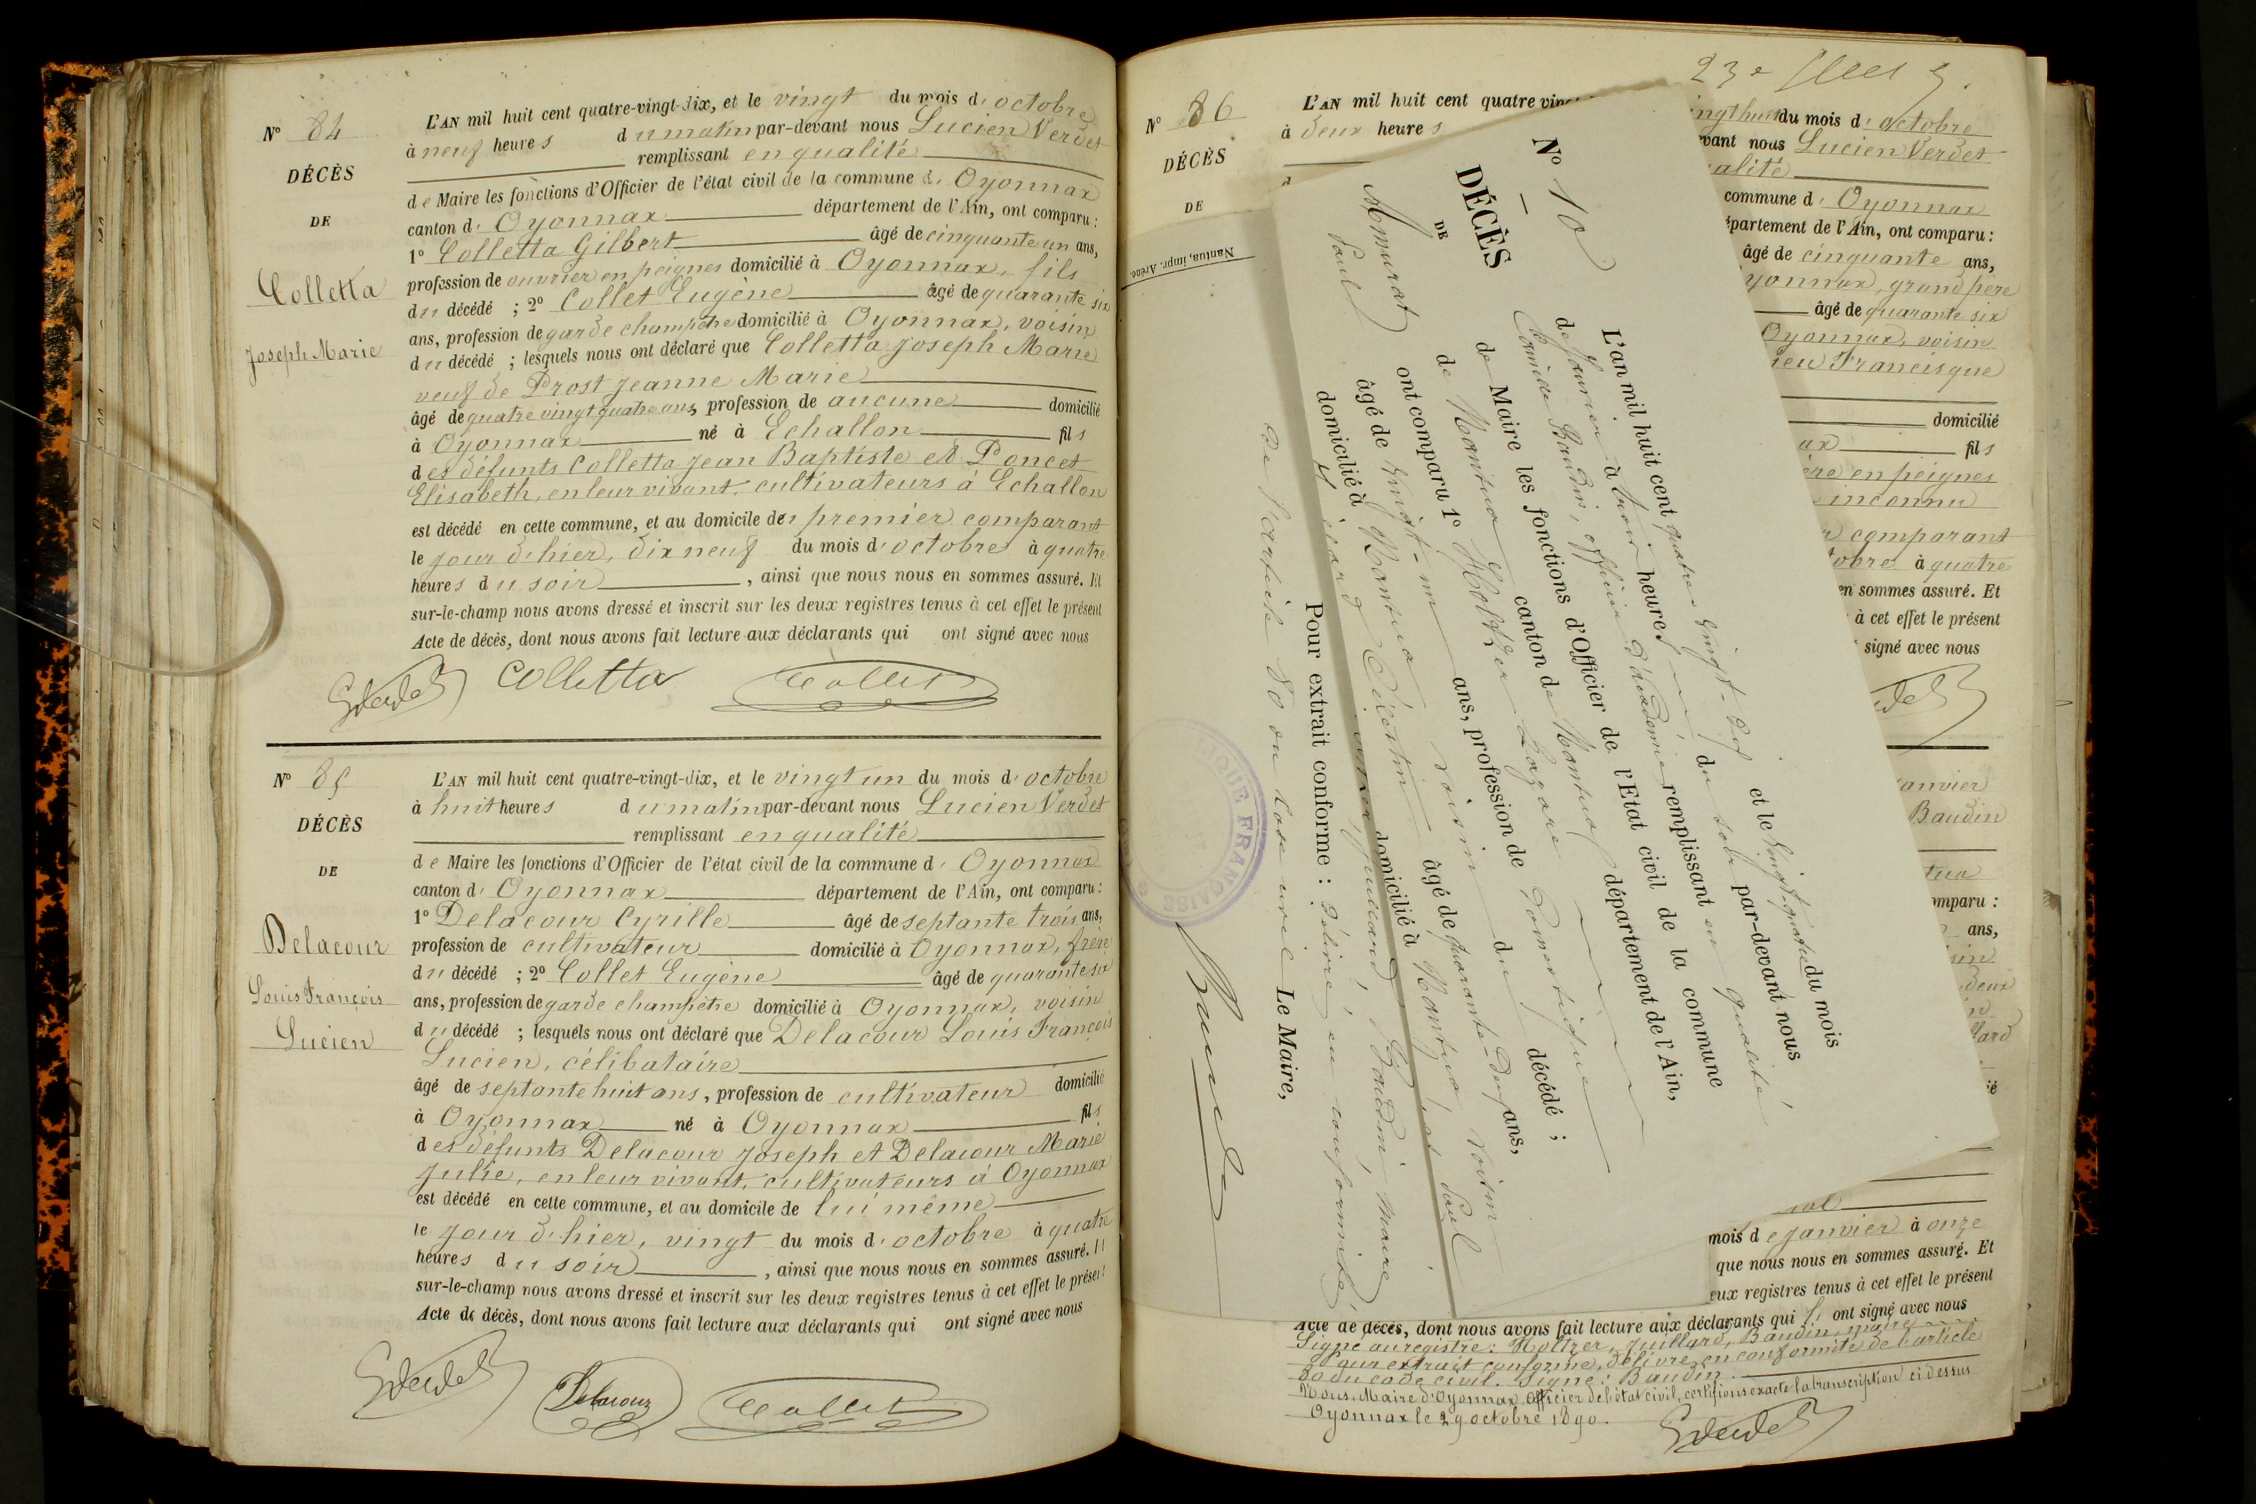 N° 84
DÉCÈS
DE
Colletta
Joseph Marie
L'AN mil huit cent quatre-vingt-dix, et le vingt du mois d'octobre
à neuf heures du matin par-devant nous Lucien Verdet
remplissant en qualité
de Maire les fonctions d'Officier de l'état civil de la commune d'Oyonnax
canton d'Oyonnax département de l'Ain, ont comparu :
1° Colletta Gilbert âgé de cinquante un ans,
profession de ouvrier en peignes domicilié à Oyonnax, fils
du décédé ; 2° Collet Eugène âgé de quarante six
ans, profession de garde champêtre domicilié à Oyonnax, voisin
du décédé ; lesquels nous ont déclaré que Colletta Joseph Marie
veuf de Prost Jeanne Marie
âgé de quatre vingt quatre ans, profession de aucune domicilié
à Oyonnax né à Echallon fils
des défunts Colletta Jean Baptiste et Poncet
Elisabeth, en leur vivant, cultivateurs à Echallon
est décédé en cette commune, et au domicile du premier comparant
le jour d'hier, dix neuf du mois d'octobre à quatre
heures du soir, ainsi que nous nous en sommes assuré. Et
sur-le-champ nous avons dressé et inscrit sur les deux registres tenus à cet effet le présent
Acte de décès, dont nous avons fait lecture aux déclarants qui ont signé avec nous
Colletta Collet
N° 85
DÉCÈS
DE
Delacour
Louis François
Lucien
L'AN mil huit cent quatre-vingt-dix, et le vingt un du mois d'octobre
à huit heures du matin par-devant nous Lucien Verdet
remplissant en qualité
de Maire les fonctions d'Officier de l'état civil de la commune d'Oyonnax
canton d'Oyonnax département de l'Ain, ont comparu :
1° Delacour Cyrille âgé de septante trois ans,
profession de cultivateur domicilié à Oyonnax, frère
du décédé ; 2° Collet Eugène âgé de quarante six
ans, profession de garde champêtre domicilié à Oyonnax, voisin
du décédé ; lesquels nous ont déclaré que Delacour Louis François
Lucien, célibataire
âgé de septante huit ans, profession de cultivateur domicilié
à Oyonnax né à Oyonnax fils
des défunts Delacour Joseph et Delacour Marie
Julie, en leur vivant, cultivateurs à Oyonnax
est décédé en cette commune, et au domicile de lui même
le jour d'hier, vingt du mois d'octobre à quatre
heures du soir, ainsi que nous nous en sommes assuré. Et
sur-le-champ nous avons dressé et inscrit sur les deux registres tenus à cet effet le présent
Acte de décès, dont nous avons fait lecture aux déclarants qui ont signé avec nous
Delacour Collet
N° 86
DÉCÈS
DE
L'AN mil huit cent quatre vin
ingt huit du mois d'octobre
à deux heures
vant nous Lucien Verdet
alité
commune d'Oyonnax
épartement de l'Ain, ont comparu :
âgé de cinquante ans,
yonnax, grand père
âgé de quarante six
Oyonnax, voisin
ieu Francisque
domicilié
ax fils
ère en peignes
inconnu
r comparant
tobre à quatre
en sommes assuré. Et
à cet effet le présent
signé avec nous
Nantua, impr. Arène.
N° 10
DÉCÈS
DE
Mmurat
Paul
L'an mil huit cent quatre vingt-dix et le vingt-quatre du mois
de Janvier à trois heures du soir par-devant nous
Baudin, officier d'Académie remplissant en qualité
de Maire les fonctions d'Officier de l'Etat civil de la commune
de Nantua canton de Nantua département de l'Ain,
ont comparu 1° Holtzer Lazare
âgé de vingt-un ans, profession de Domestique
domicilié à Nantua voisin du décédé ;
âgé de quarante-deux ans,
domicilié à Nantua voisin
Juillard, Baudin, maire
Pour extrait conforme : délivré en conformité
de l'article 80 du Code civil Le Maire,
Baudin
RÉPUBLIQUE FRANÇAISE
anvier
Baudin
tua
omparu :
ans,
isin
deux
lard
mois de janvier à onze
que nous nous en sommes assuré. Et
eux registres tenus à cet effet le présent
Acte de décès, dont nous avons fait lecture aux déclarants qui ont signé avec nous
Signé au registre : Holtzer, Juillard, Baudin, maire
Pour extrait conforme, délivré en conformité de l'article
80 du code civil. Signé : Baudin
Nous, Maire d'Oyonnax, officier de l'état civil, certifions exacte la transcription ci dessus
Oyonnax le 29 octobre 1890.